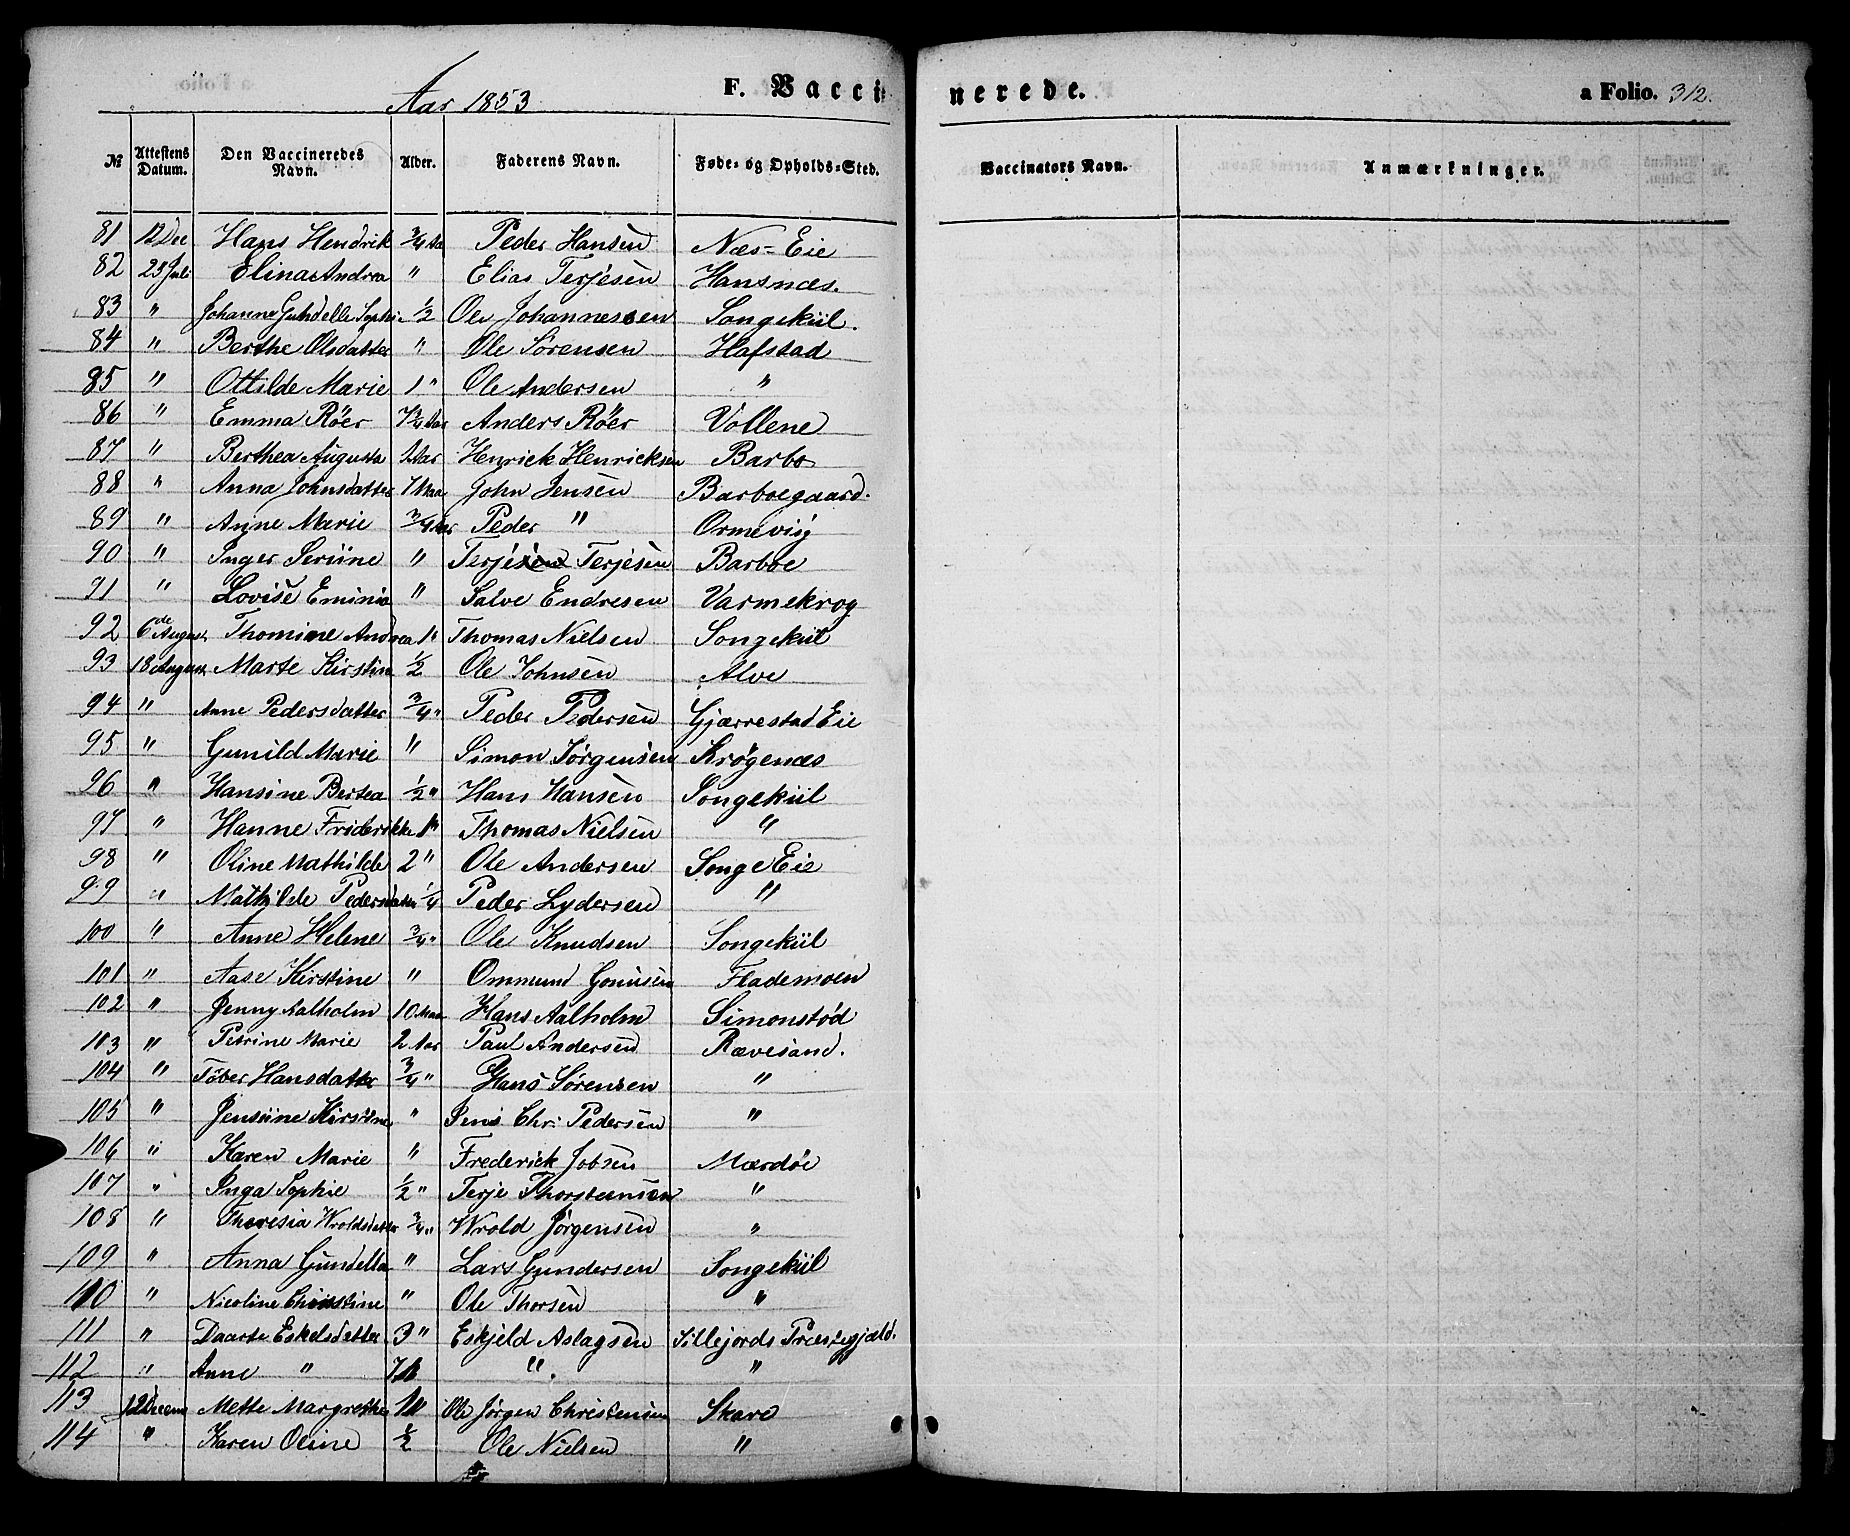 Aar 1853 F. Vaccinerede. a Folio. 312.
№ Attestens Datum. Den Vaccineredes Navn. Alder. Faderens Navn. Føde- og Opholds-Sted. Vaccinators Navn. Anmærkninger.
81 12 Dec Hans Hendrik 3/4 Aar Peder Hansen Næs-Eie
82 25 Juli Elina Andrea " Elias Terjesen Hansnæs.
83 " Johanne Gundelle Sophie 1/2 Ole Johannessen Songekiil.
84 " Berthe Olsdatter " Ole Sørensen Hafstad
85 " Ottilde Marie 1 " Ole Andersen "
86 " Emma Röer 7 1/2 Aar Anders Röer Vollene
87 " Berthea Augusta 1 Aar Henrick Henricksen Barbo
88 " Anna Johnsdatter 7 Maa John Jensen Barboegaard.
89 " Anne Marie 3/4 Aar Peder " Ormeviig
90 " Inger Seriine " Terjesen Terjesen Barboe
91 " Lovise Eminia " Salve Endresen Varmekrog
92 6de August Thomine Andrea 1 " Thomas Nielsen Songekiil
93 18 August Marte Kirstine 1/2 Ole Johnsen Alve
94 " Anne Pedersdatter 3/4 " Peder Pedersen Gjærrestad Eie
95 " Gunild Marie " Simon Jørgensen Krøgenæs
96 " Hansine Bertea 1/2 " Hans Hansen Songekiil
97 " Hanne Friderikke 1 " Thomas Nielsen "
98 " Oline Mathilde 2 " Ole Andersen Songe Eie
99 " Mathilde Pedersdatter 1/4 Peder Lydersen "
100 " Anne Helene 3/4 " Ole Knudsen Songekiil
101 " Aase Kirstine " Ommund Gonusen Flademoen
102 " Jenny Aalholm 10 Maa Hans Aalholm Simonstød
103 " Petrine Marie 2 Aar Paul Andersen Rævesand.
104 " Töber Hansdatter 3/4 " Hans Sørensen "
105 " Jensiine Kirstine " Jens Chr: Pedersen "
106 " Karen Marie " Frederick Jobsen Mærdøe
107 " Inga Sophie 1/2 " Terje Thorstensen "
108 " Theresia Wroldsdatter 3/4 " Wrold Jørgensen "
109 " Anna Gundella " Lars Gundersen Songekiil
110 " Nicoline Christine " Ole Thorsen "
111 " Daarte Eskelsdatter 3 " Eskjeld Aslagsen Sillejords Præstegjæld.
112 " Anne " " "
113 12 Decem Mette Margrethe 1 " Ole Jørgen Christensen Skare
114 " Karen Oline 1/2 Ole Nielsen "